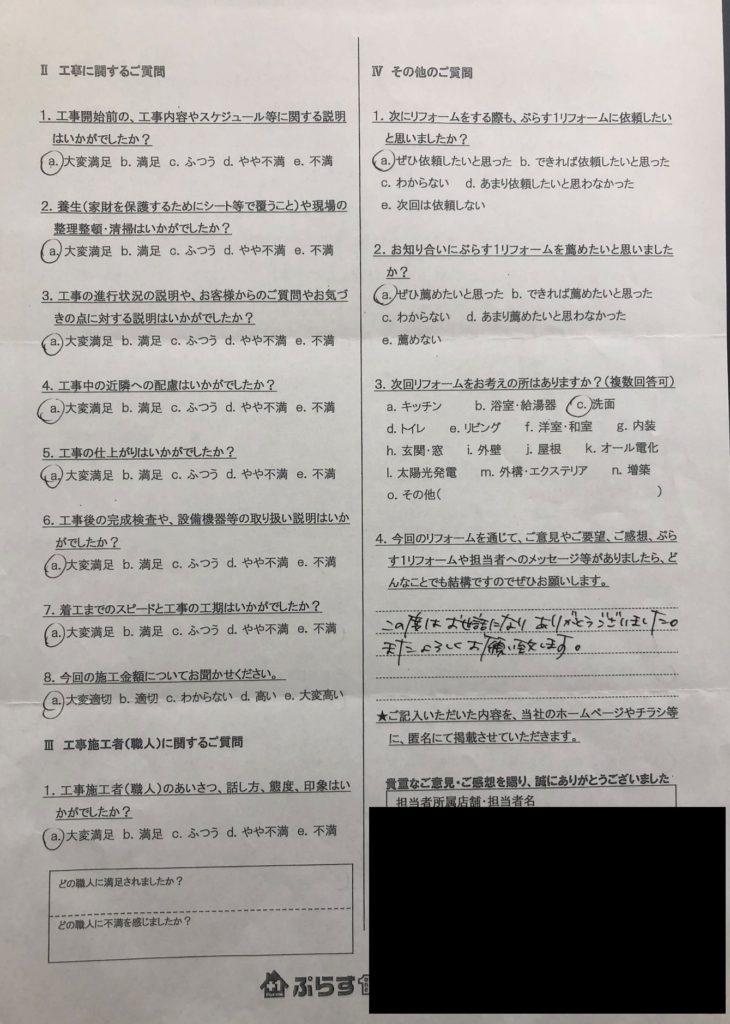 Ⅱ 工事に関するご質問
1. 工事開始前の、工事内容やスケジュール等に関する説明
はいかがでしたか？
a. 大変満足 b. 満足 c. ふつう d. やや不満 e. 不満
2. 養生(家財を保護するためにシート等で覆うこと)や現場の
整理整頓・清掃はいかがでしたか？
a. 大変満足 b. 満足 c. ふつう d. やや不満 e. 不満
3. 工事の進行状況の説明や、お客様からのご質問やお気づ
きの点に対する説明はいかがでしたか？
a. 大変満足 b. 満足 c. ふつう d. やや不満 e. 不満
4. 工事中の近隣への配慮はいかがでしたか？
a. 大変満足 b. 満足 c. ふつう d. やや不満 e. 不満
5. 工事の仕上がりはいかがでしたか？
a. 大変満足 b. 満足 c. ふつう d. やや不満 e. 不満
6. 工事後の完成検査や、設備機器等の取り扱い説明はいか
がでしたか？
a. 大変満足 b. 満足 c. ふつう d. やや不満 e. 不満
7. 着工までのスピードと工事の工期はいかがでしたか？
a. 大変満足 b. 満足 c. ふつう d. やや不満 e. 不満
8. 今回の施工金額についてお聞かせください。
a. 大変適切 b. 適切 c. わからない d. 高い e. 大変高い
Ⅲ 工事施工者(職人)に関するご質問
1. 工事施工者(職人)のあいさつ、話し方、態度、印象はい
かがでしたか？
a. 大変満足 b. 満足 c. ふつう d. やや不満 e. 不満
どの職人に満足されましたか？
どの職人に不満を感じましたか？
Ⅳ その他のご質問
1. 次にリフォームをする際も、ぷらす1リフォームに依頼したい
と思いましたか？
a. ぜひ依頼したいと思った b. できれば依頼したいと思った
c. わからない d. あまり依頼したいと思わなかった
e. 次回は依頼しない
2. お知り合いにぷらす1リフォームを薦めたいと思いました
か？
a. ぜひ薦めたいと思った b. できれば薦めたいと思った
c. わからない d. あまり薦めたいと思わなかった
e. 薦めない
3. 次回リフォームをお考えの所はありますか？(複数回答可)
a. キッチン b. 浴室・給湯器 c. 洗面
d. トイレ e. リビング f. 洋室・和室 g. 内装
h. 玄関・窓 i. 外壁 j. 屋根 k. オール電化
l. 太陽光発電 m. 外構・エクステリア n. 増築
o. その他( )
4. 今回のリフォームを通じて、ご意見やご要望、ご感想、ぷら
す1リフォームや担当者へのメッセージ等がありましたら、ど
んなことでも結構ですのでぜひお願いします。
この度はお世話になりありがとうございました。
またよろしくお願い致します。
★ご記入いただいた内容を、当社のホームページやチラシ等
に、匿名にて掲載させていただきます。
貴重なご意見・ご感想を賜り、誠にありがとうございました
担当者所属店舗・担当者名
+1 ぷらす1